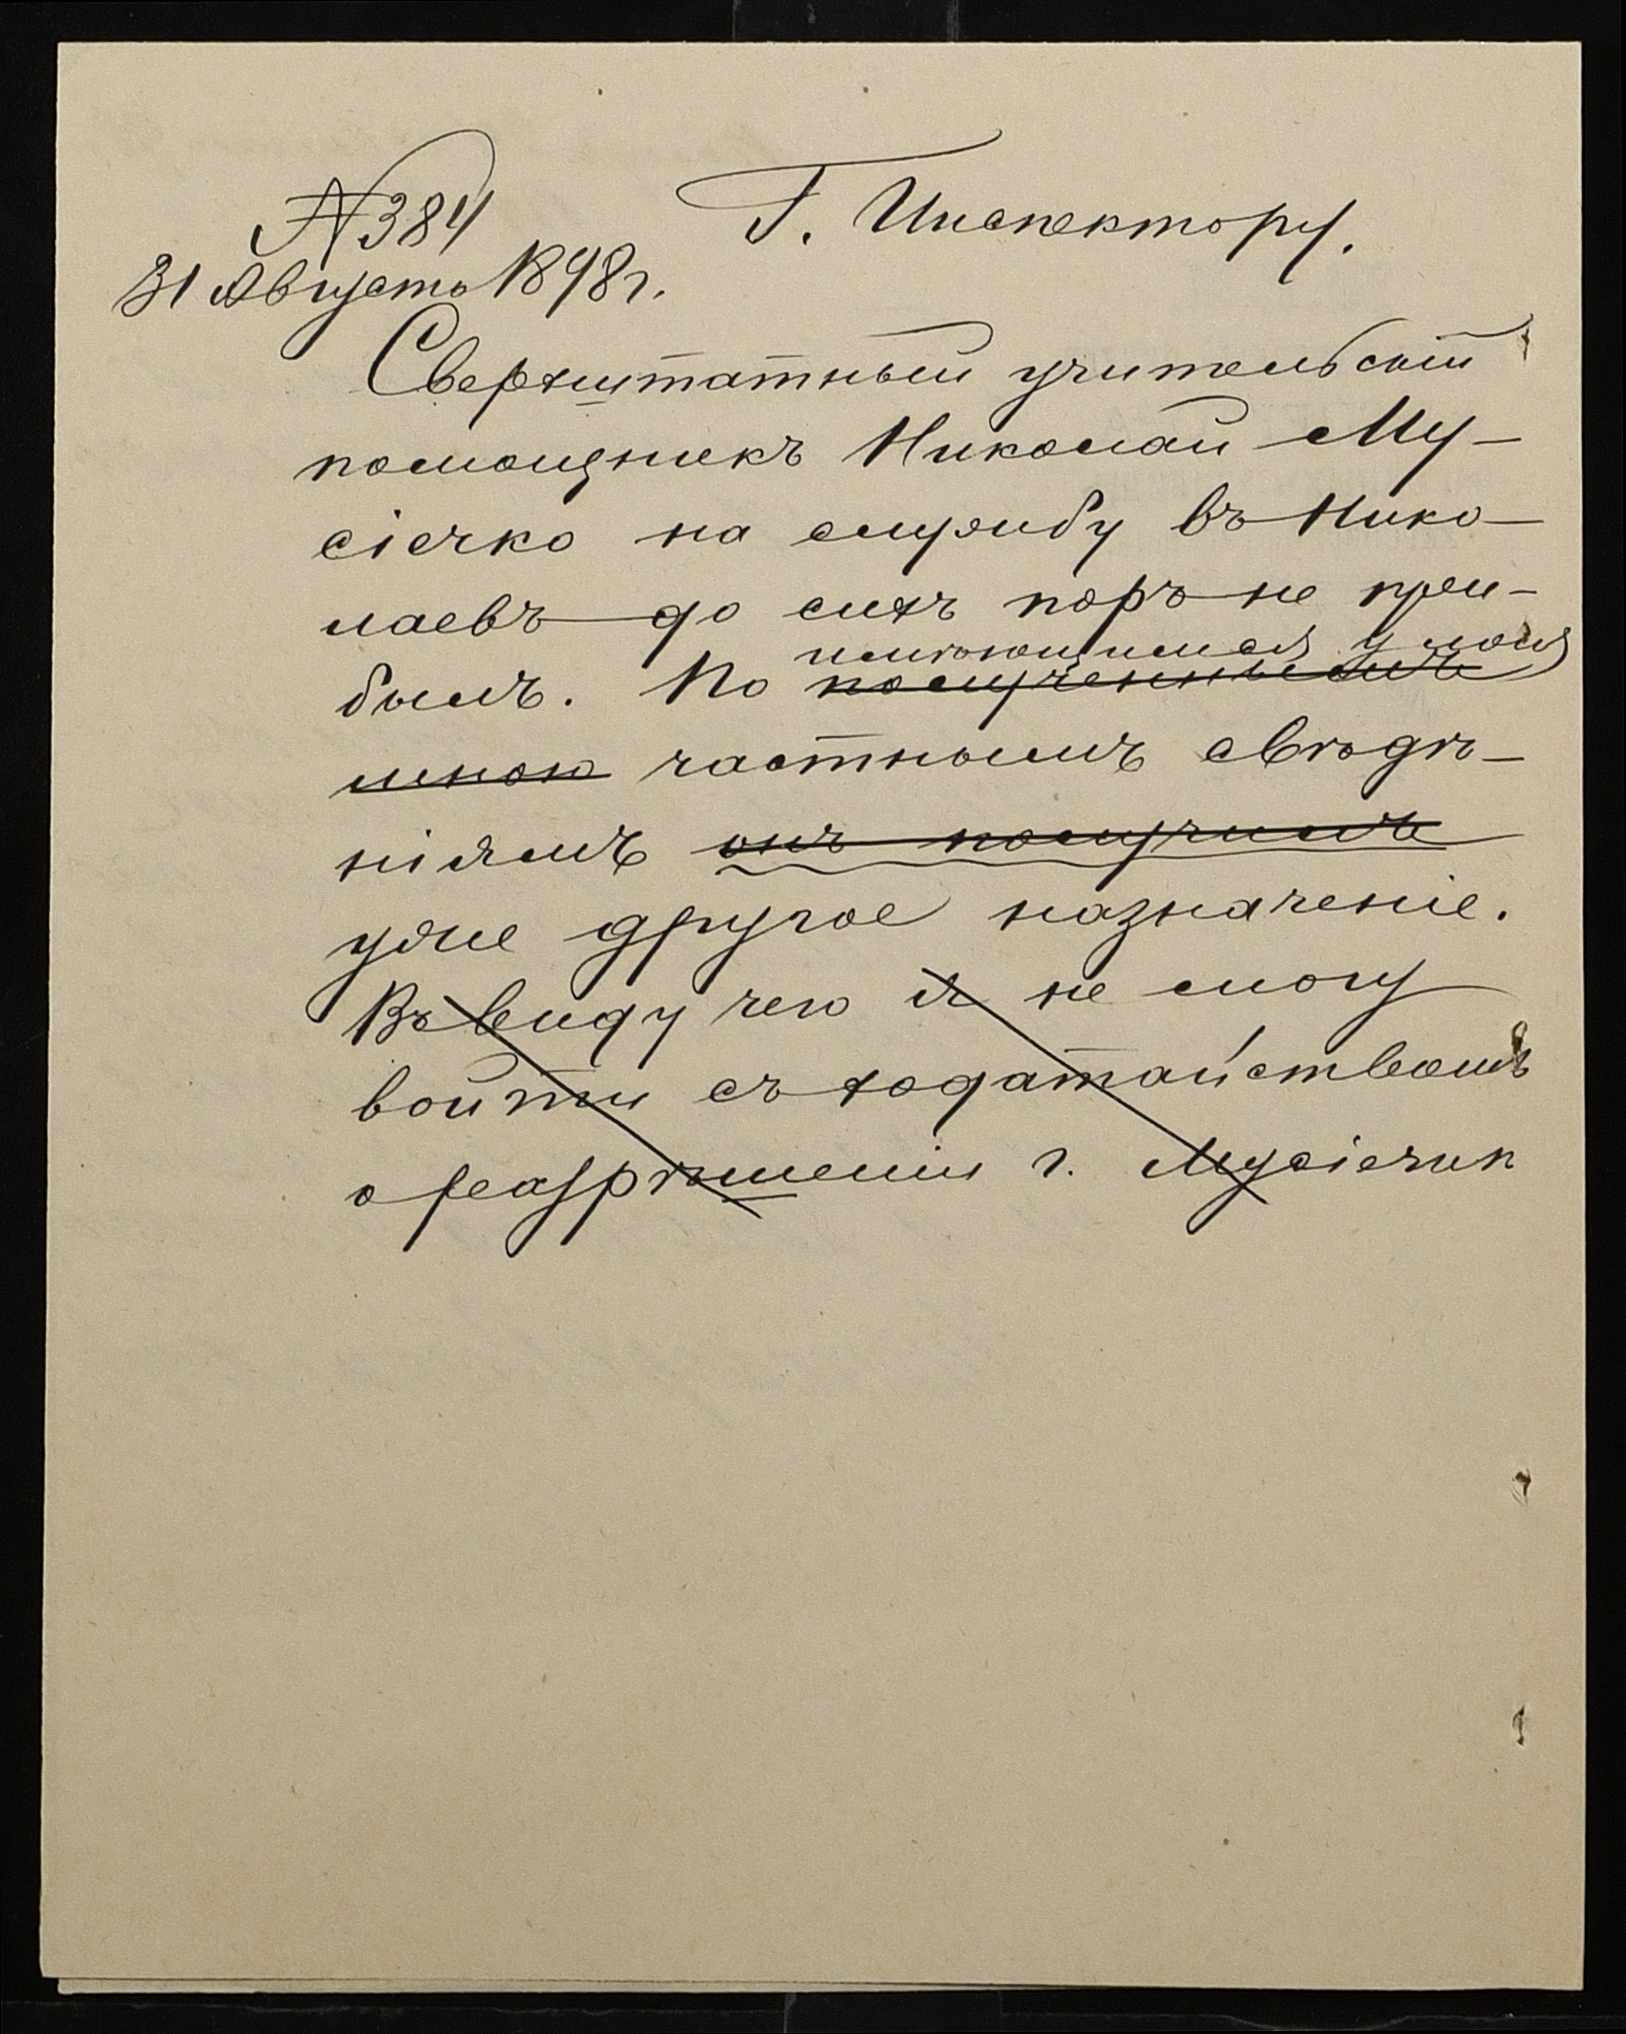 № 384
Г. Инспектору.
31 Августа 1898 г.
Сверхштатный учительскій
помощникъ Николай Му-
сіечко на службу въ Нико-
лаевъ до сихъ поръ не при-
имѣющимся у меня
былъ. По полученнымъ
мною частнымъ свѣдѣ-
ніямъ онъ получилъ
уже другое назначеніе.
Въ виду чего я не могу
войти съ ходатайствомъ
о разрѣшеніи г.